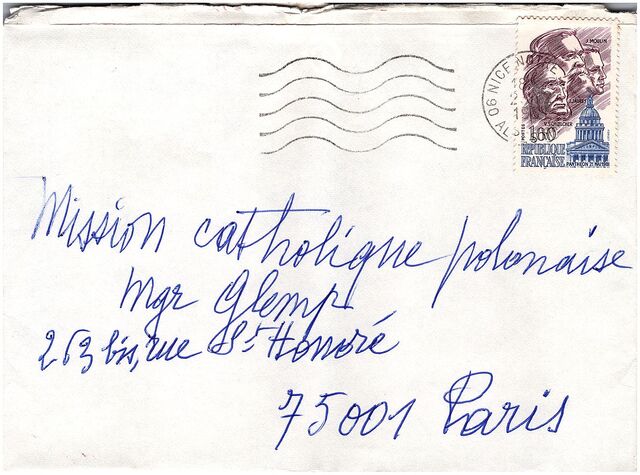 J. MOULIN
J. JAURÈS
V. SCHOELCHER
06 NICE NOTRE
18
1,60
POSTES
RÉPUBLIQUE
FRANÇAISE
PANTHÉON 21 MAI 1981
Mission catholique polonaise
Mgr Glemp
263 bis, rue St Honoré
75001 Paris